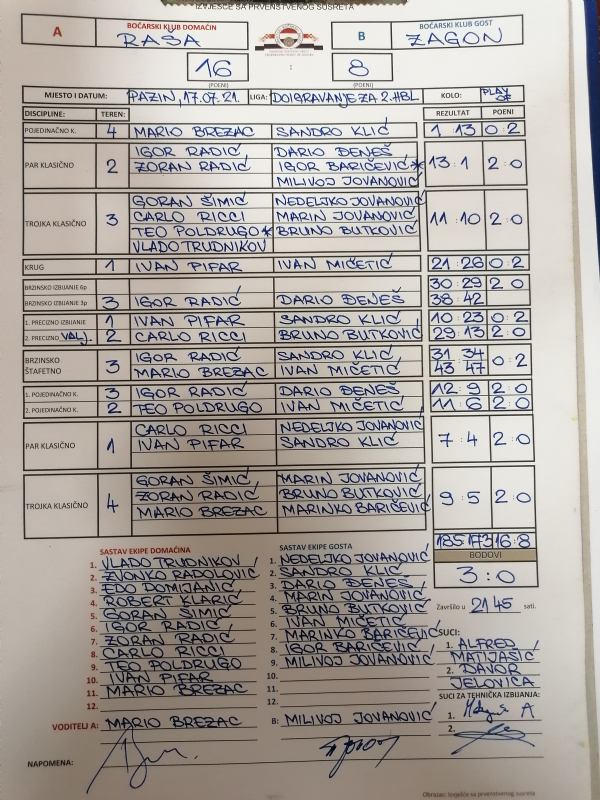 IZVJEŠĆE SA PRVENSTVENOG SUSRETA
A BOĆARSKI KLUB DOMAĆIN B BOĆARSKI KLUB GOST
RAŠA ZAGON
16 : 8
(POENI) (POENI)
MJESTO I DATUM: PAZIN, 17.07.21. LIGA: DOIGRAVANJE ZA 2.HBL KOLO: PLAY OF
DISCIPLINE: TEREN: REZULTAT POENI
POJEDINAČNO K. 4 MARIO BREZAC SANDRO KLIĆ 1:13 0:2
PAR KLASIČNO 2 IGOR RADIĆ DARIO ĐENEŠ 13:1 2:0
ZORAN RADIĆ IGOR BARIČEVIĆ*
MILIVOJ JOVANOVIĆ
TROJKA KLASIČNO 3 GORAN ŠIMIĆ NEDELJKO JOVANOVIĆ 11:10 2:0
CARLO RICCI MARIN JOVANOVIĆ
TEO POLDRUGO* BRUNO BUTKOVIĆ
VLADO TRUDNIKOV
KRUG 1 IVAN PIFAR IVAN MIČETIĆ 21:28 0:2
BRZINSKO IZBIJANJE 6p 30:29 2:0
BRZINSKO IZBIJANJE 3p 3 IGOR RADIĆ DARIO ĐENEŠ 38:42
1. PRECIZNO IZBIJANJE 1 IVAN PIFAR SANDRO KLIĆ 10:23 0:2
2. PRECIZNO VALJ. 2 CARLO RICCI BRUNO BUTKOVIĆ 29:13 2:0
BRZINSKO ŠTAFETNO 3 IGOR RADIĆ SANDRO KLIĆ 31:34 0:2
MARIO BREZAC IVAN MIČETIĆ 43:47
1. POJEDINAČNO K. 3 IGOR RADIĆ DARIO ĐENEŠ 12:9 2:0
2. POJEDINAČNO K. 2 TEO POLDRUGO IVAN MIČETIĆ 11:6 2:0
PAR KLASIČNO 1 CARLO RICCI NEDELJKO JOVANOVIĆ 7:4 2:0
IVAN PIFAR SANDRO KLIĆ
TROJKA KLASIČNO 4 GORAN ŠIMIĆ MARIN JOVANOVIĆ 9:5 2:0
ZORAN RADIĆ BRUNO BUTKOVIĆ
MARIO BREZAC MARINKO BARIČEVIĆ
185:173 16:8
BODOVI
3:0
Završilo u 21 45 sati.
SASTAV EKIPE DOMAĆINA
1. VLADO TRUDNIKOV
2. ZVONKO RADOLOVIĆ
3. EDO DOMIJANIĆ
4. ROBERT KLARIĆ
5. GORAN ŠIMIĆ
6. IGOR RADIĆ
7. ZORAN RADIĆ
8. CARLO RICCI
9. TEO POLDRUGO
10. IVAN PIFAR
11. MARIO BREZAC
12.
SASTAV EKIPE GOSTA
1. NEDELJKO JOVANOVIĆ
2. SANDRO KLIĆ
3. DARIO ĐENEŠ
4. MARIN JOVANOVIĆ
5. BRUNO BUTKOVIĆ
6. IVAN MIČETIĆ
7. MARINKO BARIČEVIĆ
8. IGOR BARIČEVIĆ
9. MILIVOJ JOVANOVIĆ
10.
11.
12.
SUCI:
1. ALFRED
MATIJAŠIĆ
2. DAVOR
JELOVICA
SUCI ZA TEHNIČKA IZBIJANJA:
1.
2.
VODITELJ A: MARIO BREZAC B: MILIVOJ JOVANOVIĆ
NAPOMENA:
Obrazac: Izvješće sa prvenstvenog susreta